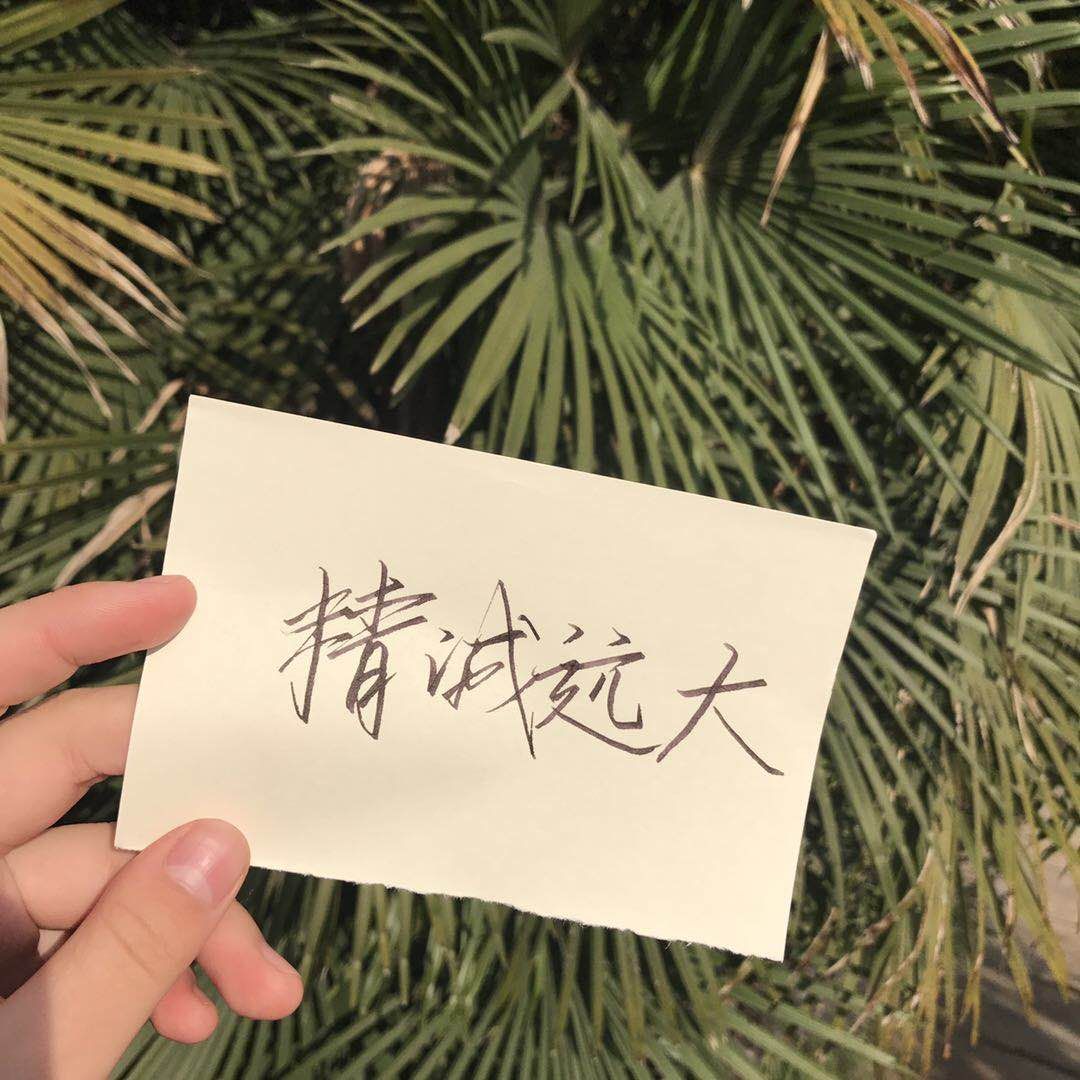 精诚远大